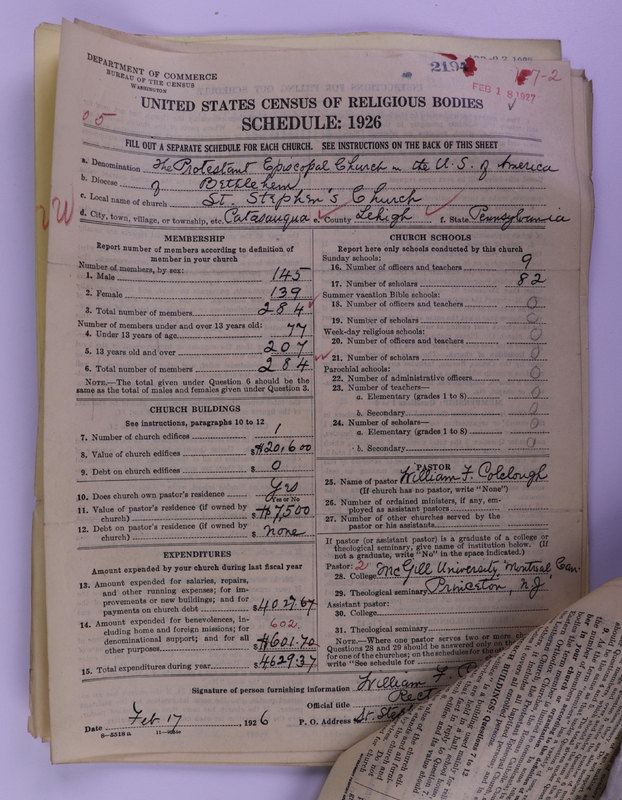 DEPARTMENT OF COMMERCE
BUREAU OF THE CENSUS
WASHINGTON
219
7-2
FEB 18 1927
UNITED STATES CENSUS OF RELIGIOUS BODIES
SCHEDULE: 1926
05
FILL OUT A SEPARATE SCHEDULE FOR EACH CHURCH. SEE INSTRUCTIONS ON THE BACK OF THIS SHEET
a. Denomination The Protestant Episcopal Church in the U.S. of America
b. Diocese of Bethlehem
c. Local name of church St. Stephen's Church
W
d. City, town, village, or township, etc. Catasauqua e. County Lehigh f. State Pennsylvania
MEMBERSHIP
Report number of members according to definition of
member in your church
Number of members, by sex:
1. Male 145
2. Female 139
3. Total number of members 284
Number of members under and over 13 years old:
4. Under 13 years of age 77
5. 13 years old and over 207
6. Total number of members 284
NOTE.—The total given under Question 6 should be
the same as the total of males and females given under Question 3.
CHURCH BUILDINGS
See instructions, paragraphs 10 to 12
7. Number of church edifices 1
8. Value of church edifices $ #20,600
9. Debt on church edifices $ 0
10. Does church own pastor's residence Yes
Yes or No
11. Value of pastor's residence (if owned by
church) $ #7,500
12. Debt on pastor's residence (if owned by
church) $ none
EXPENDITURES
Amount expended by your church during last fiscal year
13. Amount expended for salaries, repairs,
and other running expenses; for im-
provements or new buildings; and for
payments on church debt $ 4027.67
14. Amount expended for benevolences, in-
cluding home and foreign missions; for
denominational support; and for all
other purposes 602 $ #601.70
15. Total expenditures during year $ 4629.37
CHURCH SCHOOLS
Report here only schools conducted by this church
Sunday schools:
16. Number of officers and teachers 9
17. Number of scholars 82
Summer vacation Bible schools:
18. Number of officers and teachers 0
19. Number of scholars 0
Week-day religious schools:
20. Number of officers and teachers 0
21. Number of scholars 0
Parochial schools:
22. Number of administrative officers 0
23. Number of teachers—
a. Elementary (grades 1 to 8) 0
b. Secondary 0
24. Number of scholars—
a. Elementary (grades 1 to 8) 0
b. Secondary 0
PASTOR
25. Name of pastor William F. Colclough
(If church has no pastor, write "None")
26. Number of ordained ministers, if any, em-
ployed as assistant pastors
27. Number of other churches served by the
pastor or his assistants
If pastor (or assistant pastor) is a graduate of a college or
theological seminary, give name of institution below. (If
not a graduate, write "No" in the space indicated.)
Pastor: 2
28. College McGill University, Montreal Can.
29. Theological seminary Princeton, N.J.
Assistant pastor:
30. College
31. Theological seminary
NOTE.—Where one pastor serves two or more
Questions 28 and 29 should be answered only on the
for one of the churches; on the schedules for the
write "See schedule for
Signature of person furnishing information William F.
Official title Rect
Date Feb 17 1926 P. O. Address St. Step
8—5518a